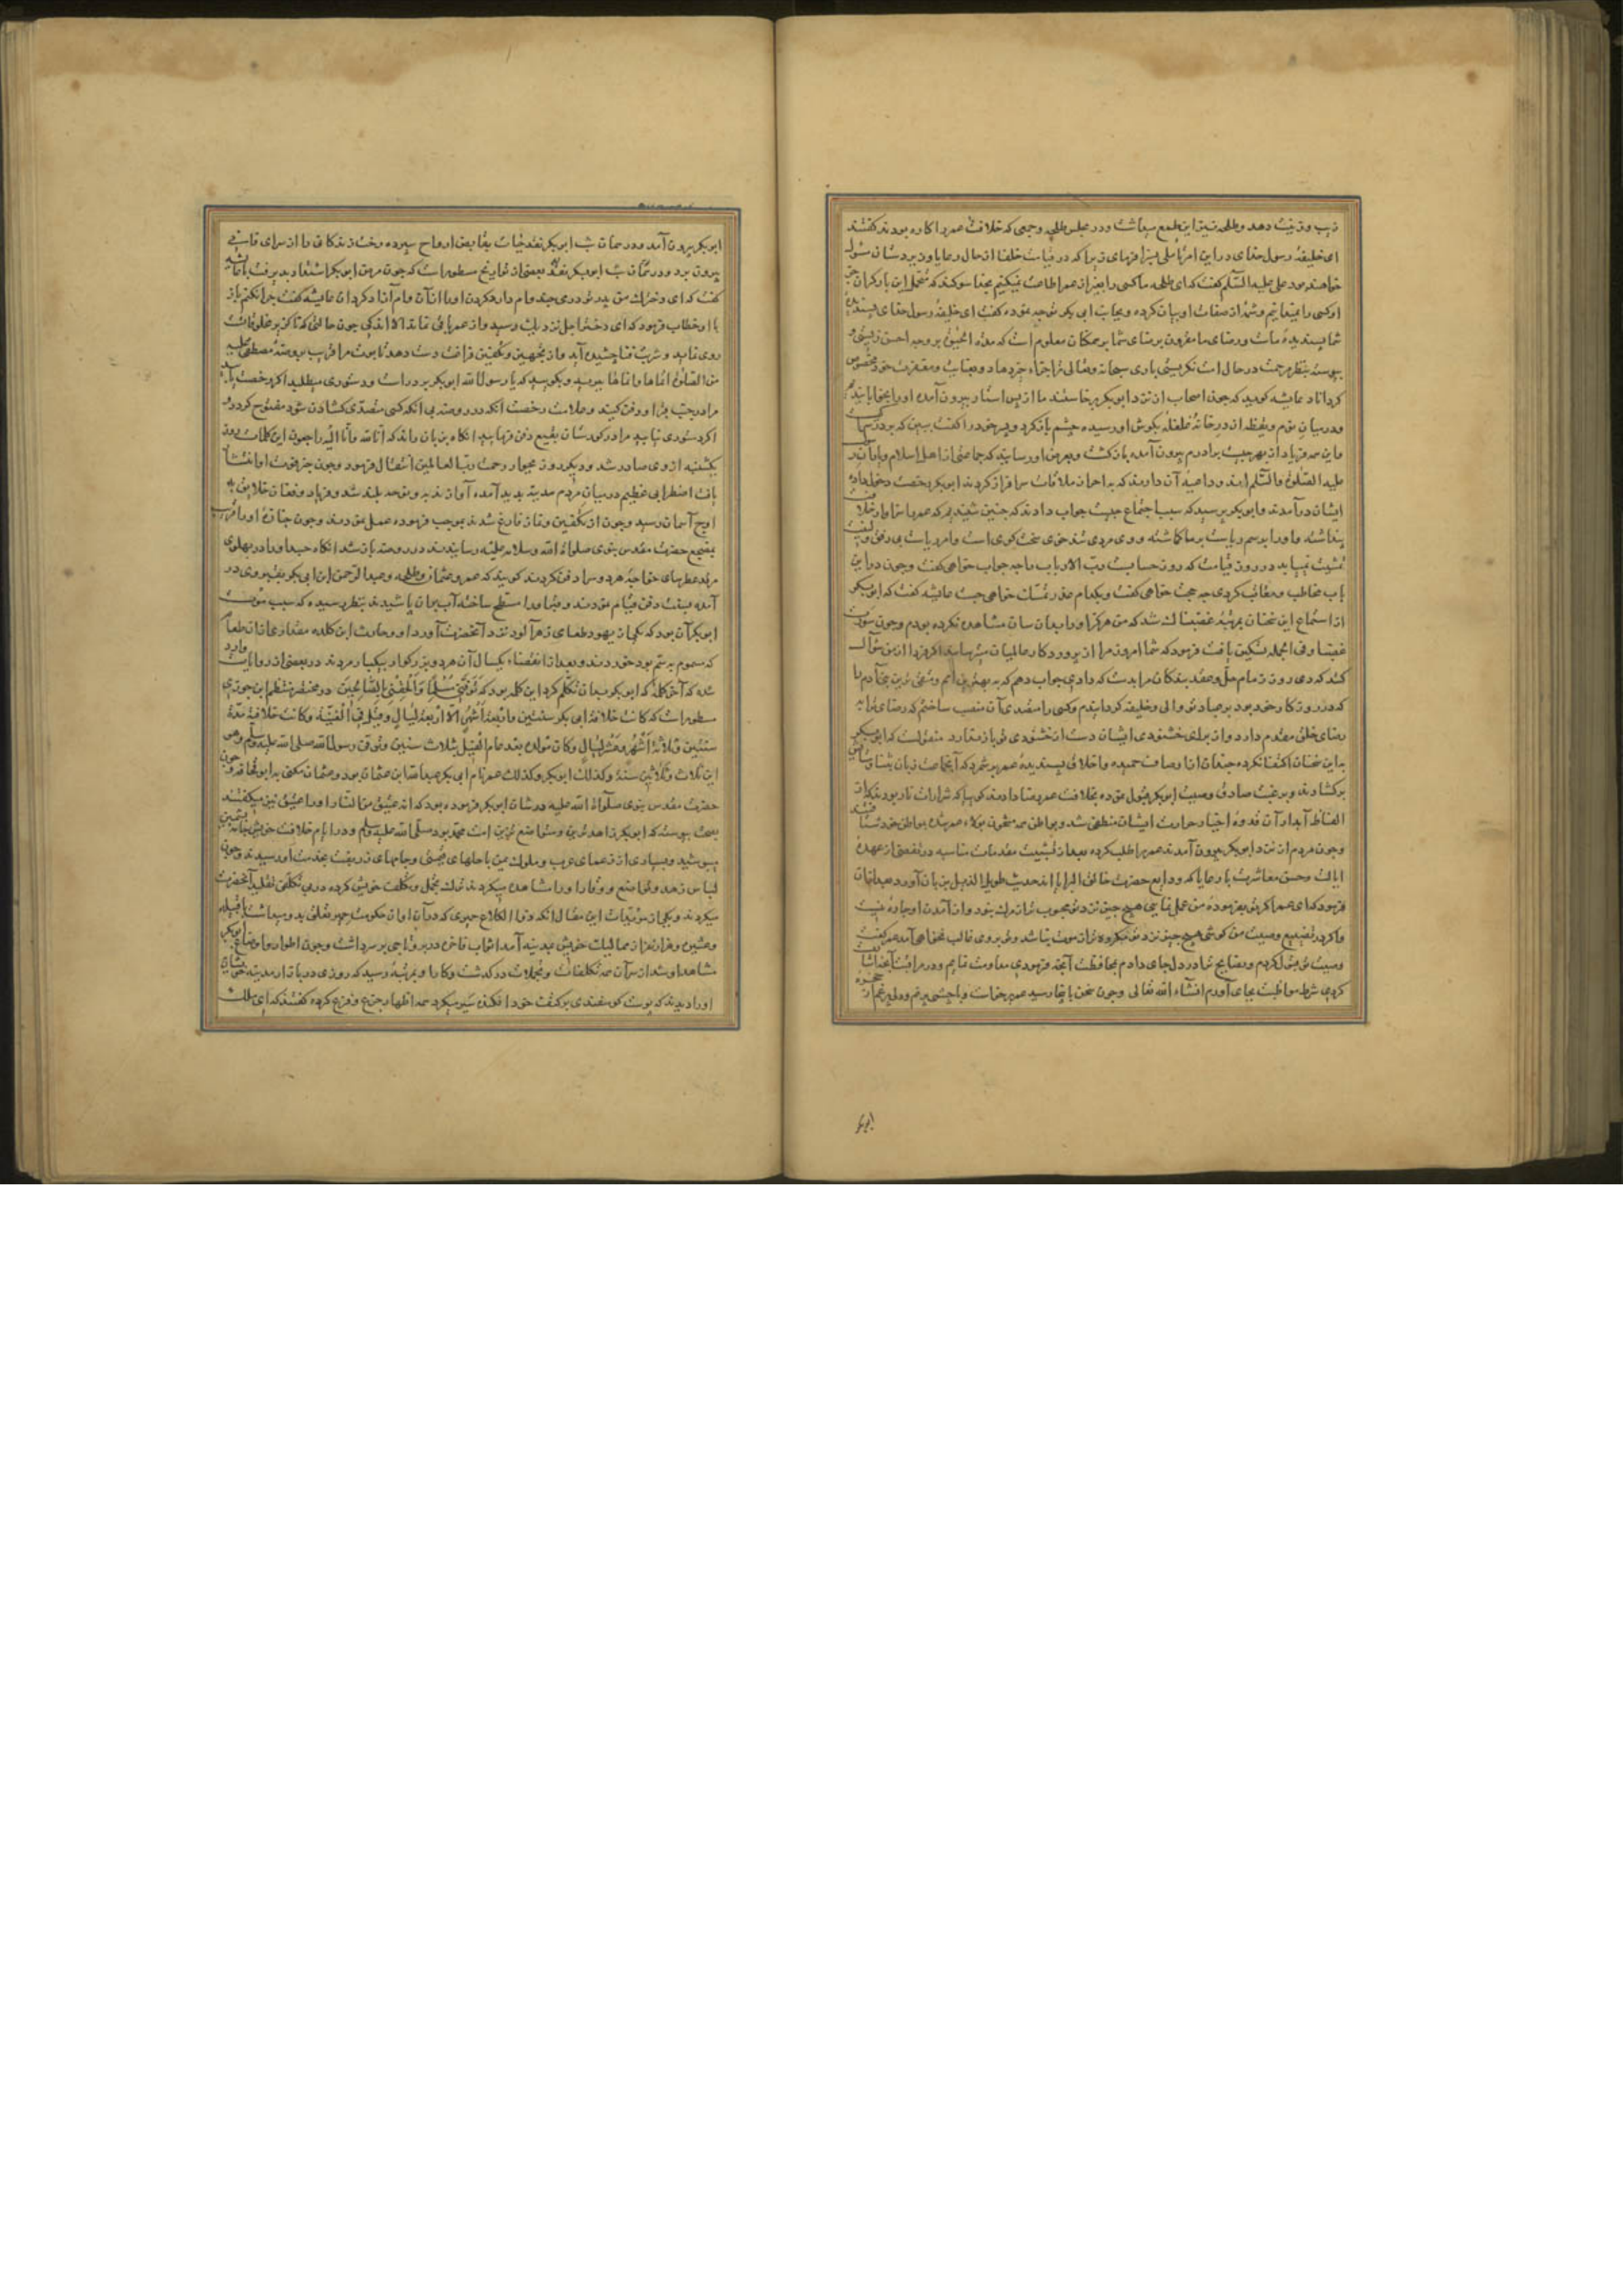 زیب وزینت دهد وطلحه نیز این طمع میداشت ودر مجلس طلحه وجمعی که خلافت عمر را کاره بودند گفتند
ای خلیفه رسول خدای در این امر تأملی بسزا فرمای زیرا که در قیامت خلفا از حال رعایا و زیردستان مسئول
خواهند بود علی علیه السلام گفت که ای طلحه ما کسی را بغیر از عمر اطاعت نمیکنیم بخدا سوکند که متحمل این بار کران جز
او کسی را نمیدانیم وشمهٔ از صفات او بیان کرده وبجانب ابی بکر توجه نموده گفت ای خلیفه رسول خدای پسندیدهٔ
شما پسندیدهٔ ماست ورضای ما مقرون برضای شما بر همکنان معلوم است که مدة الحیوة بر وجه احسن زیستی و
پیوسته بنظر مرحمت در حال امت نکریستی باری سبحانه وتعالی ترا جزاء خیر دهاد وبعنایت ومغفرت خود مخصوص
کرداناد عایشه کوید که چون اصحاب از نزد ابوبکر برخاستند ما از پس استار بیرون آمده
ودر میان نوم ویقظه از در خانه غلغله بکوش او رسیده چشم باز کرد وپسر خود را گفت ببین که بر در
واین همه فریاد از بهر چیست برادرم بیرون آمده باز کشت وبعرض او رسانید که جماعتی از اهل اسلام
علیه الصلوة والسلام اند وداعیه آن دارند که به احراز ملاقات سرافراز کردند ابوبکر رخصت دخول داده
ایشان درآمدند وابوبکر پرسید که سبب اجتماع چیست جواب دادند که چنین شنیدیم که عمر را
پنداشته واو را بوسم ریاست بر ما کماشته ووی مردی تند خوی سخت کوی است وامر ریاست بی رفق
تمشیت نمییابد در روز قیامت که روز حسابست رب الارباب را چه جواب خواهی گفت وچون در این
باب مخاطب ومعاتب کردی چه حجت خواهی گفت وبکدام عذر تمسک خواهی جست عایشه گفت که ابوبکر
از استماع این سخنان بمرتبهٔ غضبناک شد که من هرکز او را بدان سان مشاهده نکرده بودم وچون سورت
غضب او فی الجمله تسکین یافت فرمود که شما امروز مرا از پروردکار عالمیان میترسانید اکر فردا از من سؤال
کند که دی روز زمام حل وعقد بندکان مرا بدست که دادی جواب دهم که به بهترین امم
که در روزکار خود بود بر عباد تو والی وخلیفه کردانیدم وکسی را متصدی آن منصب ساختم که رضای ترا به
رضای خلق مقدم دارد
به این سخنان اکتفا نکرده چندان از اوصاف حمیده واخلاق پسندیده عمر بر شمرد که
برکشادند وبرغبت صادق وصیت ابوبکر قبول نموده بخلافت عمر رضا دادند
الفاظ آبدار آن قدوهٔ اخیار حرارت ایشان منطفی شد
وچون مردم از نزد ابوبکر بیرون آمدند عمر را طلب کرده بعد از تمشیت مقدمات مناسبه در تفصی از عهدهٔ
ایالت وحسن معاشرت با رعایا که ودایع حضرت خالق البرایا اند حدیث طویل الذیل بر زبان آورد وبعد از آن
فرمود که ای عمر اکر تو بفرمودهٔ من عمل نمایی هیچ چیز نزد تو محبوب تر از مرک نبود واز آمدن او چاره نیست
واکر در تضییع وصیت من کوشی هیچ چیز نزد تو مکروه تر از موت نباشد وتو بر وی غالب نخواهی آمد عمر گفت
وصیت تو قبول کردم ونصایح ترا در دل جای دادم بمحافظت آنچه فرمودی
کردی شرط مواظبت بجای آورم انشاء الله تعالی وچون سخن باینجا رسید عمر برخاست وبا چشمی پر نم ودلی پر غم از
ابوبکر بیرون آمد ودر همان شب ابوبکر نقد حیات بقابض ارواح سپرده رخت زندکانی را از سرای فانی
بیرون برد ودر بعضی از تواریخ مسطور است که چون مرض ابوبکر اشتداد پذیرفت با عایشه
گفت که ای دخترک من پدر تو درمی چند وام دارد
با او خطاب فرمود که ای دختر اجل نزدیک رسید واز عمر باقی نماند الا اندکی
روی نماید وشربت فنا چشیده آید واز تجهیز وتکفین فراغت دست دهد تابوت مرا قریب بروضهٔ مصطفی علیه
من الصلوة اتمها وانماها ببرید وبکویید که یا رسول الله ابوبکر بر در است ودستوری میطلبد اکر رخصت یابید
مرا در جنب او دفن کنید وعلامت رخصت آنکه در روضه بی آنکه کسی متصدی کشادن شود مفتوح کردد و
اکر دستوری نیابید مرا در کورستان بقیع دفن نمایید آنکاه بر زبان راند که انا لله وانا الیه راجعون این کلمات روز
یکشنبه از وی صادر شد ودیکر روز بجوار رحمت رب العالمین انتقال فرمود وچون خبر فوت او انتشار
یافت اضطرابی عظیم در میان مردم مدینه پدید آمده آواز ندبه ونوحه بلند شد وفریاد وفغان خلایق به
اوج آسمان رسید وچون از تکفین ونماز فارغ شدند بموجب فرموده عمل نمودند وچون جنازهٔ او را قریب
بمضجع حضرت مقدس نبوی صلوات الله وسلامه علیه رسانیدند در روضه باز شد آنکاه جسد او را در پهلوی
مرقد عطرسای خواجهٔ هر دو سرا دفن کردند کویند که عمر وعثمان وطلحه وعبد الرحمن ابن ابی بکر بقبر وی در
آمده بسنت دفن قیام نمودند وقبر او را مسطح ساخته آب بر آن پاشیدند بنظر رسیده که سبب موت
ابوبکر آن بود که یکی از یهود طعامی زهر آلود نزد آنحضرت آورد او وحارث ابن کلده مقداری از آن طعام
که مسموم به سم بود خوردند وبعد از انقضاء یکسال آن هر دو بزرکوار بیکبار مردند در بعضی از روایات وارد
شده که آخر کلمهٔ که ابوبکر بدان تکلم کرد این کلمه بود که توفنی مسلما والحقنی بالصالحین در مختصر منتظم ابن جوزی
مسطور است که کانت خلافة ابی بکر سنتین واربعة اشهر الا اربعة لیال وقیل فی الغنیة وکانت خلافته مدة
سنتین وثلاثة اشهر وعشر لیال وکان تولده بعد عام الفیل بثلاث سنین وتوفی رسول الله صلی الله علیه وسلم وهو
ابن ثلاث وثلاثین سنة وکذلک ابوبکر وکذلک عمر نام ابی بکر عبد الله ابن عثمان بود وعثمان مکنی به ابو قحافه وچون
حضرت مقدس نبوی صلوات الله علیه در شان ابوبکر فرموده بود که انه عتیق من النار او را عتیق نیز میکفتند
بصحت پیوسته که ابوبکر زاهدترین ومتواضع ترین امت محمد بود صلی الله علیه وسلم ودر ایام خلافت خویش
میپوشید وبسیاری از زعمای عرب وملوک یمن با حلهای یمنی وجامهای زربفت بخدمت او رسیدند وچون
لباس زهد وتواضع ووقار او را مشاهده میکردند ترک تجمل وتکلف خویش کرده در بی تکلفی تقلید آنحضرت
میکردند ویکی از مؤیدات این مقال آنکه ذو الکلاع حمیری که در آن اوان حکومت حمیر تعلق بدو میداشت با قبیله
وعشیرت وهزار نفر از ممالیک خویش بمدینه آمد اثواب فاخر در بر وتاجی بر سر داشت وچون اطوار واوضاع ابوبکر
مشاهد او شد از سر آن همه تکلفات وتجملات درکذشت وکار او بمرتبهٔ رسید که روزی در بازار مدینه
او را دیدند که پوست کوسفندی بر کتف خود افکنده سیر میکرد همه اظهار جزع وفزع کرده گفتند که ای ملک